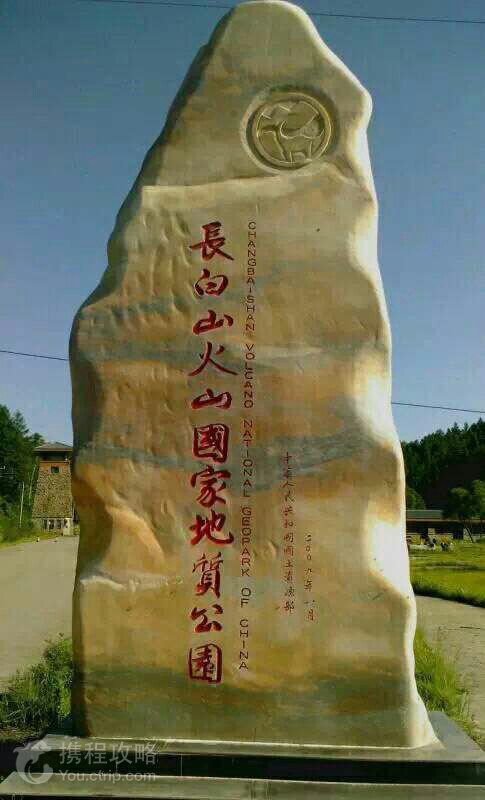 長白山火山國家地質公園
CHANGBAISHAN VOLCANO NATIONAL GEOPARK OF CHINA
中华人民共和国国土资源部
二00九年八月
携程攻略
You.ctrip.com